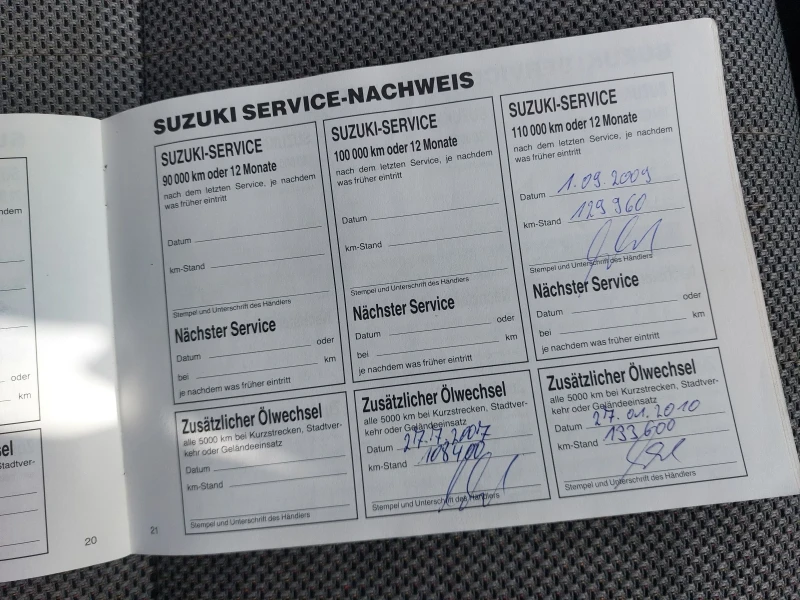 SUZUKI SERVICE-NACHWEIS
SUZUKI-SERVICE
90 000 km oder 12 Monate
nach dem letzten Service, je nachdem
was früher eintritt
Datum
km-Stand
Stempel und Unterschrift des Händlers
Nächster Service
Datum oder
bei km
je nachdem was früher eintritt
Zusätzlicher Ölwechsel
alle 5000 km bei Kurzstrecken, Stadtver-
kehr oder Geländeeinsatz
Datum
km-Stand
Stempel und Unterschrift des Händlers
SUZUKI-SERVICE
100 000 km oder 12 Monate
nach dem letzten Service, je nachdem
was früher eintritt
Datum
km-Stand
Stempel und Unterschrift des Händlers
Nächster Service
Datum oder
bei km
je nachdem was früher eintritt
Zusätzlicher Ölwechsel
alle 5000 km bei Kurzstrecken, Stadtver-
kehr oder Geländeeinsatz
Datum 27.7.2007
km-Stand 108400
Stempel und Unterschrift des Händlers
SUZUKI-SERVICE
110 000 km oder 12 Monate
nach dem letzten Service, je nachdem
was früher eintritt
Datum 1.09.2009
km-Stand 129960
Stempel und Unterschrift des Händlers
Nächster Service
Datum oder
bei km
je nachdem was früher eintritt
Zusätzlicher Ölwechsel
alle 5000 km bei Kurzstrecken, Stadtver-
kehr oder Geländeeinsatz
Datum 27.01.2010
km-Stand 133600
Stempel und Unterschrift des Händlers
oder
km
Stadtver-
20
21